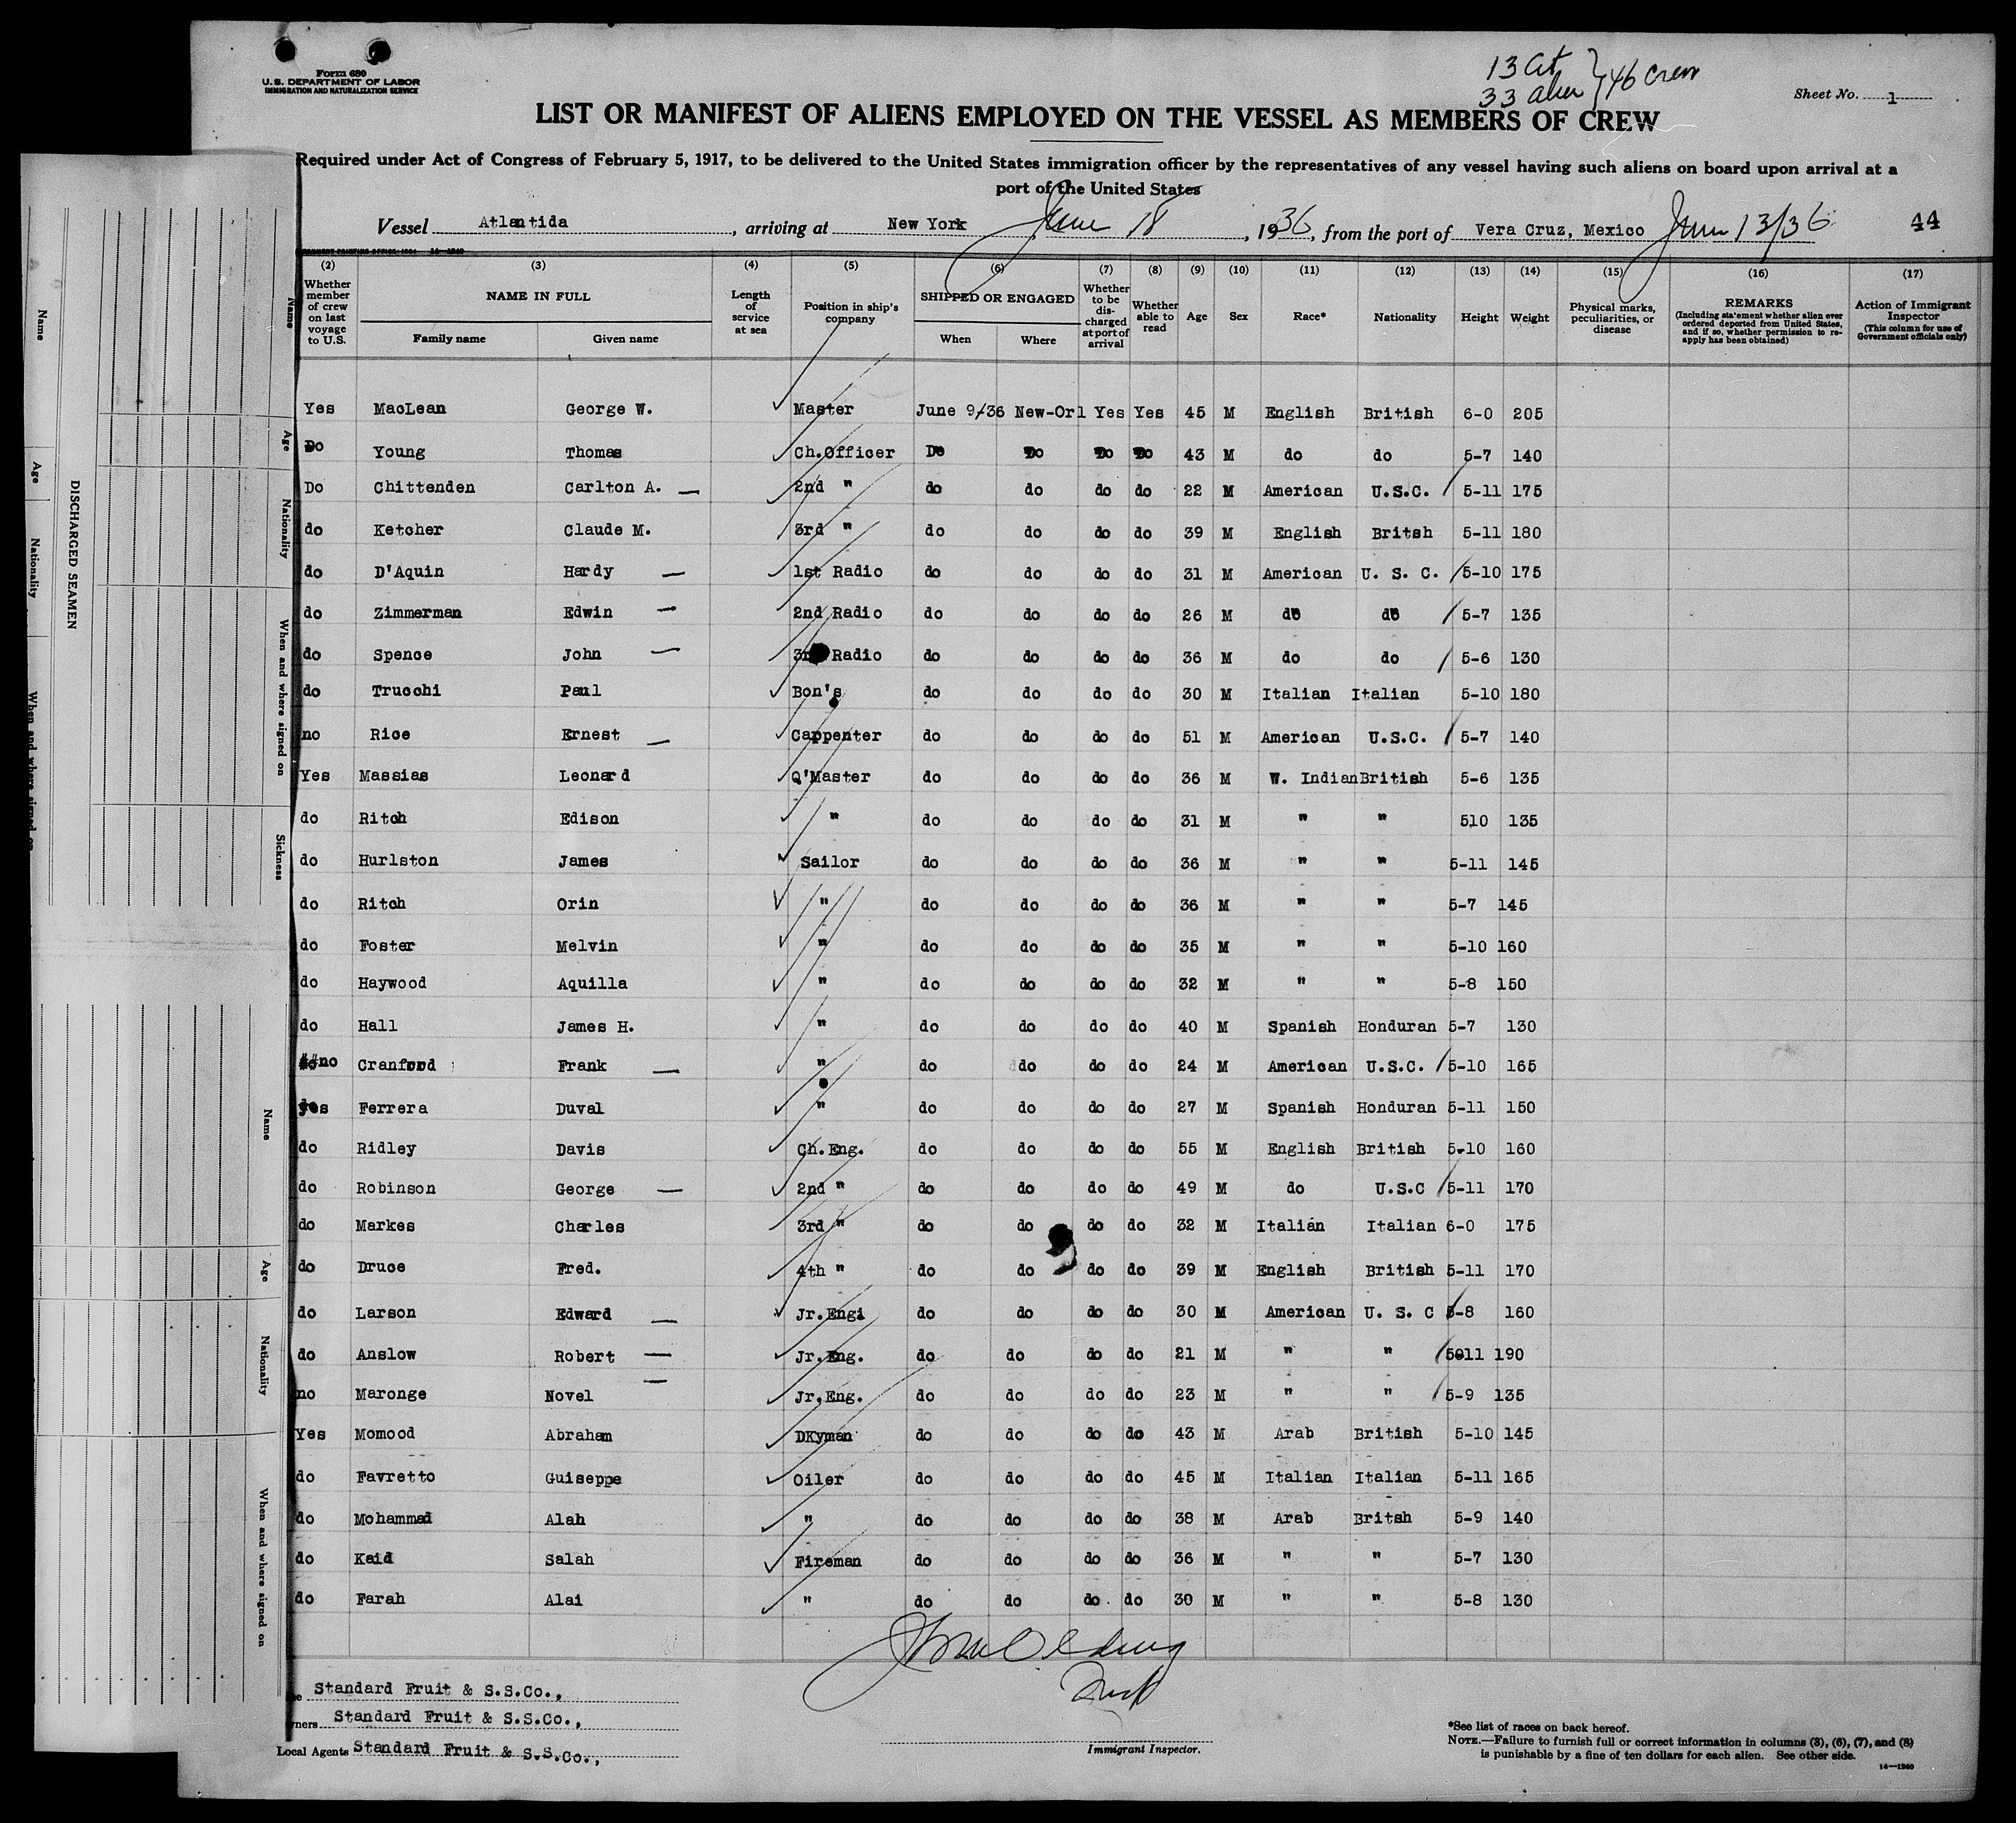 Form 680
U.S. DEPARTMENT OF LABOR
IMMIGRATION AND NATURALIZATION SERVICE
13 Cit
33 alien } 46 crew
Sheet No. 1
LIST OR MANIFEST OF ALIENS EMPLOYED ON THE VESSEL AS MEMBERS OF CREW
Required under Act of Congress of February 5, 1917, to be delivered to the United States immigration officer by the representatives of any vessel having such aliens on board upon arrival at a
port of the United States
Vessel Atlantida, arriving at New York June 18, 1936, from the port of Vera Cruz, Mexico June 13/36 44
(2) (3) (4) (5) (6) (7) (8) (9) (10) (11) (12) (13) (14) (15) (16) (17)
Whether member of crew on last voyage to U.S.
NAME IN FULL
Family name Given name
Length of service at sea
Position in ship's company
SHIPPED OR ENGAGED
When Where
Whether to be discharged at port of arrival
Whether able to read
Age
Sex
Race*
Nationality
Height
Weight
Physical marks, peculiarities, or disease
REMARKS
(Including statement whether alien ever ordered deported from United States, and if so, whether permission to re-apply has been obtained)
Action of Immigrant Inspector
(This column for use of Government officials only)
Yes MacLean George W. Master June 9/36 New-Orl Yes Yes 45 M English British 6-0 205
Do Young Thomas Ch.Officer Do Do Do Do 43 M do do 5-7 140
Do Chittenden Carlton A. 2nd " do do do do 22 M American U.S.C. 5-11 175
do Ketcher Claude M. 3rd " do do do do 39 M English Britsh 5-11 180
do D'Aquin Hardy 1st Radio do do do do 31 M American U. S. C. 5-10 175
do Zimmerman Edwin 2nd Radio do do do do 26 M do do 5-7 135
do Spence John 3rd Radio do do do do 36 M do do 5-6 130
do Trucchi Paul Bon's do do do do 30 M Italian Italian 5-10 180
no Rice Ernest Cappenter do do do do 51 M American U.S.C. 5-7 140
Yes Massias Leonard Q'Master do do do do 36 M W. Indian British 5-6 135
do Ritch Edison " do do do do 31 M " " 510 135
do Hurlston James Sailor do do do do 36 M " " 5-11 145
do Ritch Orin " do do do do 36 M " " 5-7 145
do Foster Melvin " do do do do 35 M " " 5-10 160
do Haywood Aquilla " do do do do 32 M " " 5-8 150
do Hall James H. " do do do do 40 M Spanish Honduran 5-7 130
no Cranford Frank " do do do do 24 M American U.S.C. 5-10 165
yes Ferrera Duval " do do do do 27 M Spanish Honduran 5-11 150
do Ridley Davis Ch.Eng. do do do do 55 M English British 5-10 160
do Robinson George 2nd " do do do do 49 M do U.S.C 5-11 170
do Markes Charles 3rd " do do do do 32 M Italian Italian 6-0 175
do Druce Fred. 4th " do do do do 39 M English British 5-11 170
do Larson Edward Jr.Engi do do do do 30 M American U. S. C 5-8 160
do Anslow Robert Jr.Eng. do do do do 21 M " " 5-11 190
no Maronge Novel Jr.Eng. do do do do 23 M " " 5-9 135
Yes Momood Abraham DKyman do do do do 43 M Arab British 5-10 145
do Favretto Guiseppe Oiler do do do do 45 M Italian Italian 5-11 165
do Mohammad Alah " do do do do 38 M Arab Britsh 5-9 140
do Kaid Salah Fireman do do do do 36 M " " 5-7 130
do Farah Alai " do do do do 30 M " " 5-8 130
Standard Fruit & S.S.Co.,
Standard Fruit & S.S.Co.,
Local Agents Standard Fruit & S.S.Co.,
Immigrant Inspector.
*See list of races on back hereof.
NOTE.—Failure to furnish full or correct information in columns (3), (6), (7), and (8)
is punishable by a fine of ten dollars for each alien. See other side.
14—1240
DISCHARGED SEAMEN
Name
Age
Nationality
When and where signed on
Name
Age
Nationality
When and where signed on
Sickness
Name
Age
Nationality
When and where signed on